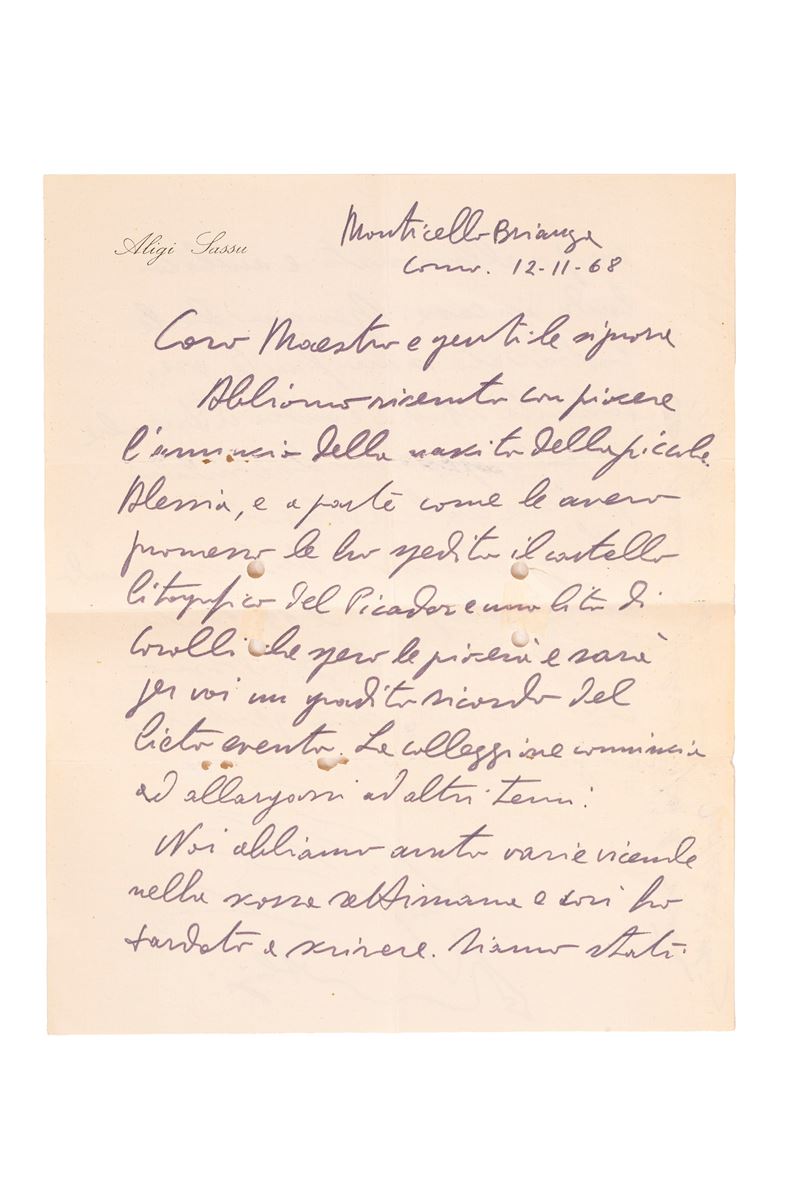 Aligi Sassu
Monticello Brianza
Como. 12-11-68
Caro Maestro e gentile signora
Abbiamo ricevuto con piacere
l'annuncio della nascita della piccola
Alessia, e a parte come le avevo
promesso le ho spedito il cartello
litografico del Picador e una lito di
Cavalli che spero le piacerà e sarà
per voi un gradito ricordo del
lieto evento. La colleggione comincia
ad allargarsi ad altri temi.
Noi abbiamo avuto varie vicende
nella scorsa settimana e così ho
tardato a scrivere. Siamo stati